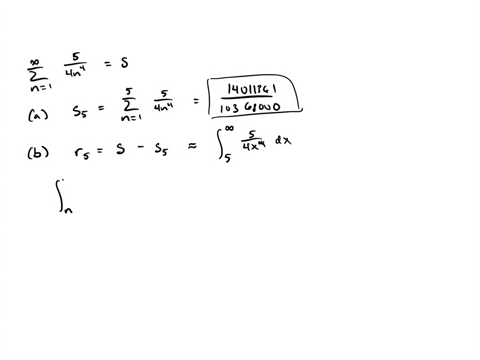 ∞
∑ 5/4n⁴ = S
n=1
(a) S₅ = ∑ₙ₌₁⁵ 5/4n⁴ = 14011361/10368000
(b) r₅ = S - S₅ ≈ ∫₅^∞ 5/4x⁴ dx
∫ₙ